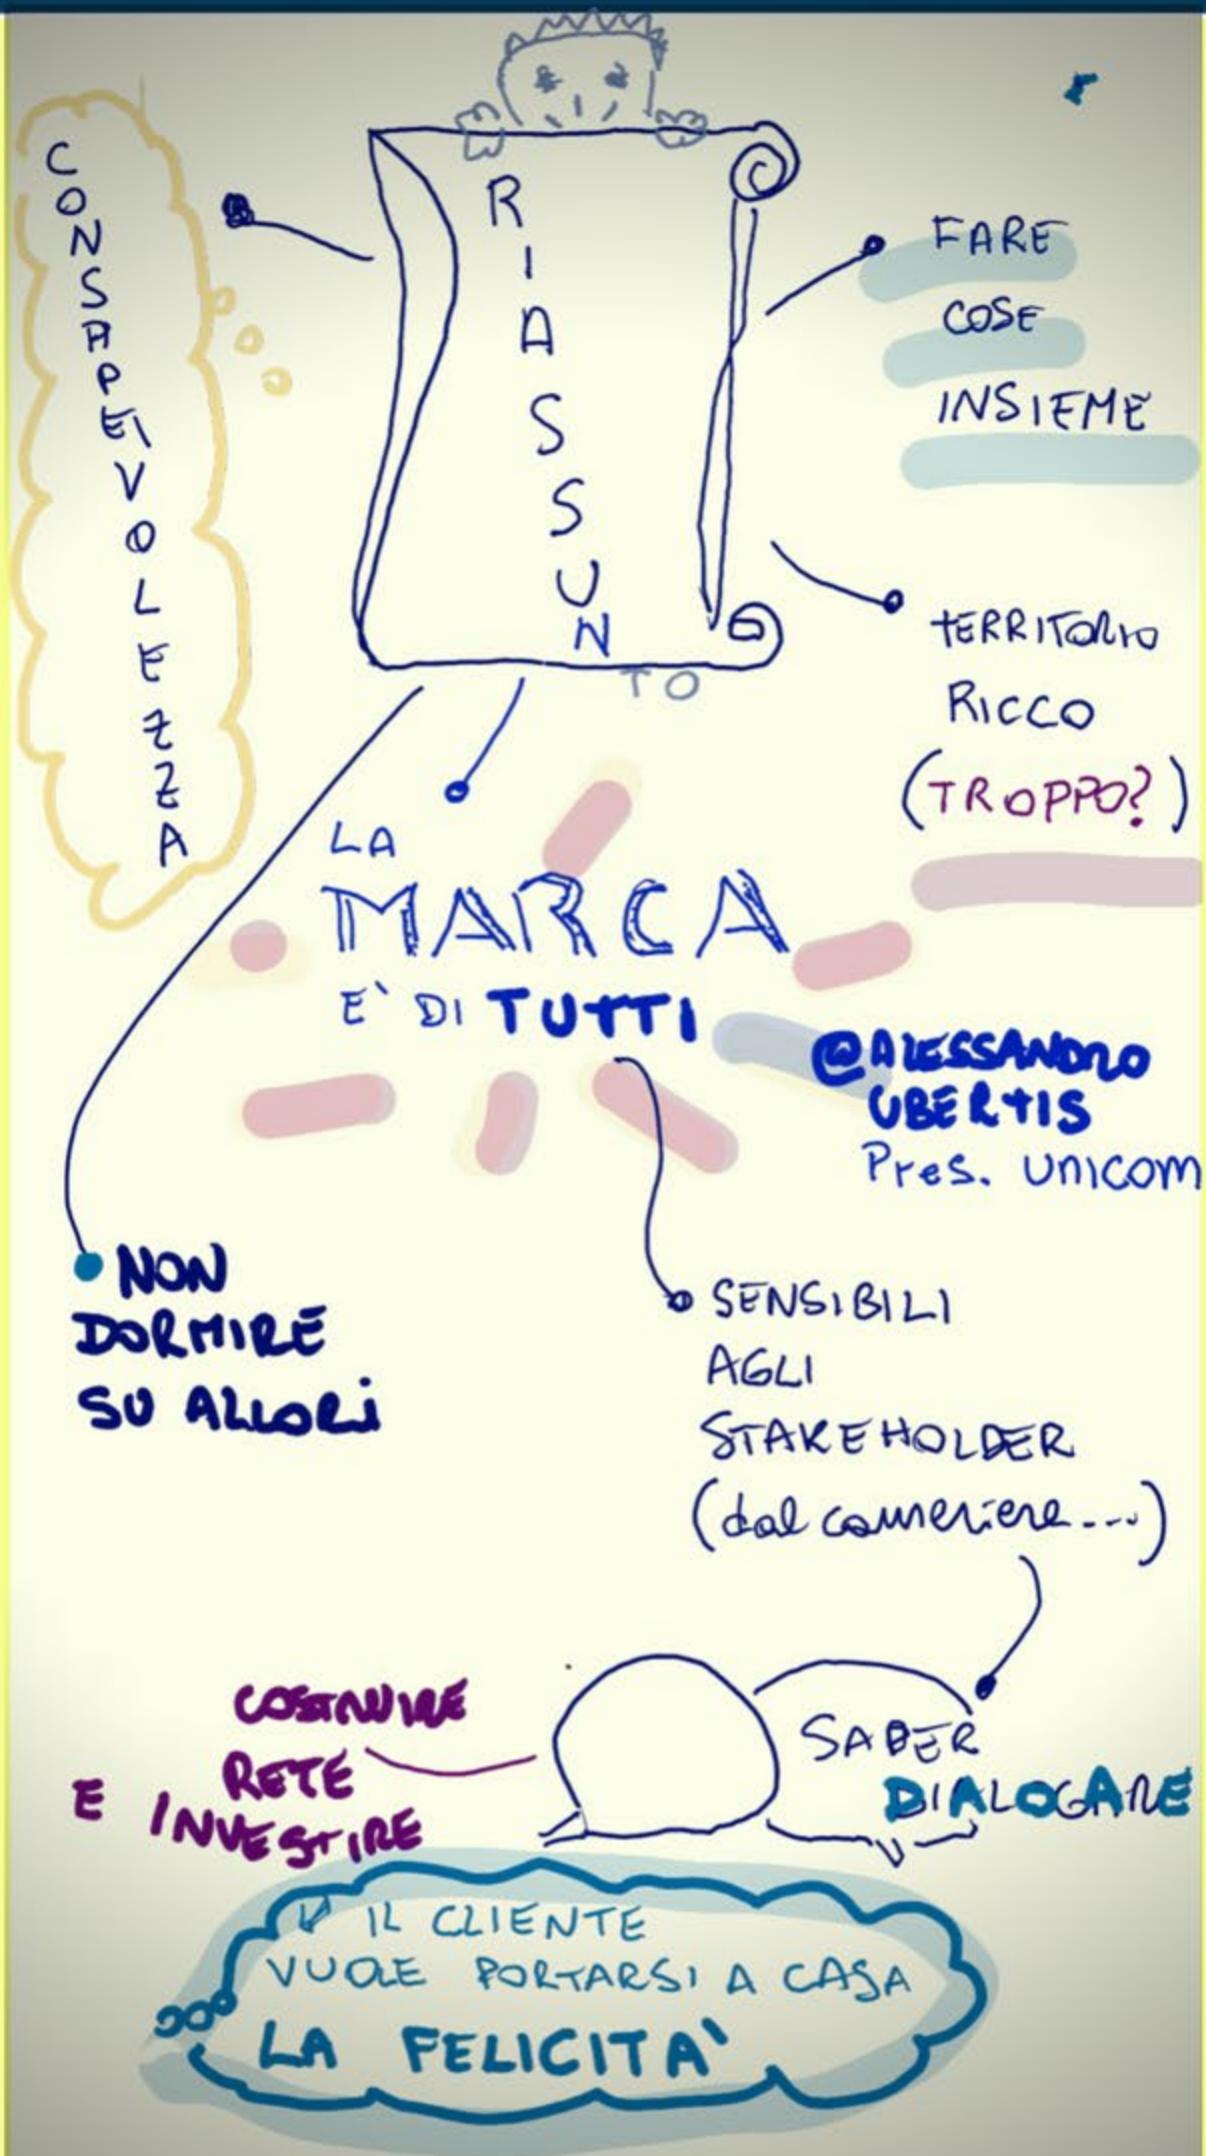 CONSAPEVOLEZZA
RIASSUNTO
FARE
COSE
INSIEME
TERRITORIO
RICCO
(TROPPO?)
LA
MARCA
E' DI TUTTI
@ALESSANDRO
UBERTIS
Pres. UNICOM
NON
DORMIRE
SU ALLORI
SENSIBILI
AGLI
STAKEHOLDER
(dal cameriere....)
SABER
DIALOGARE
COSTRUIRE
RETE
E INVESTIRE
IL CLIENTE
VUOLE PORTARSI A CASA
LA FELICITA'